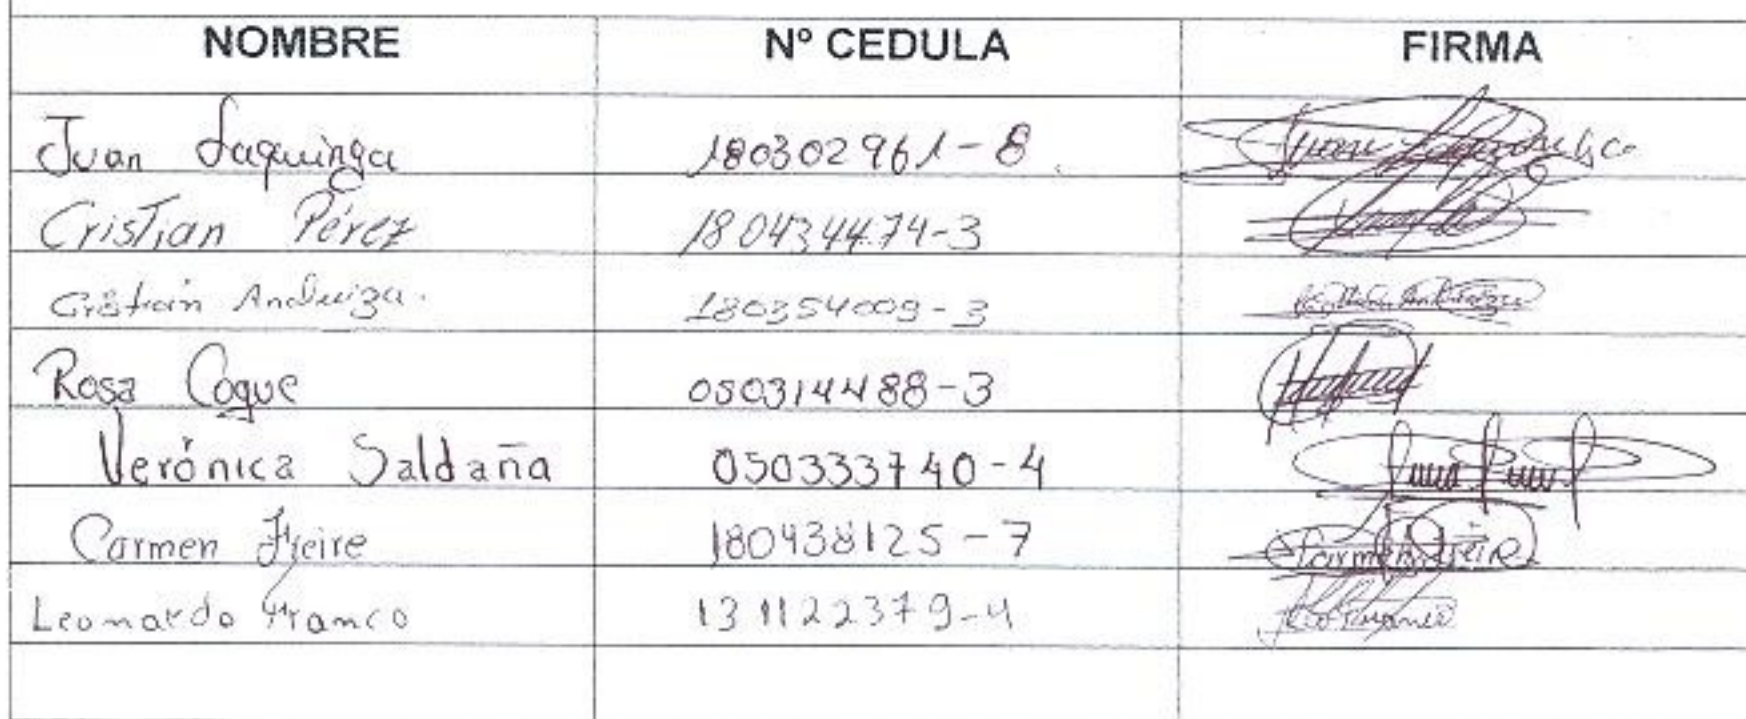 NOMBRE Nº CEDULA FIRMA
Juan Saquinga 180302961-8
Cristian Pérez 180434474-3
Cristian Andwiga. 180354009-3
Rosa Coque 050314488-3
Verónica Saldaña 050333740-4
Carmen Freire 180438125-7 Carmen Freire
Leonardo Franco 131122379-4